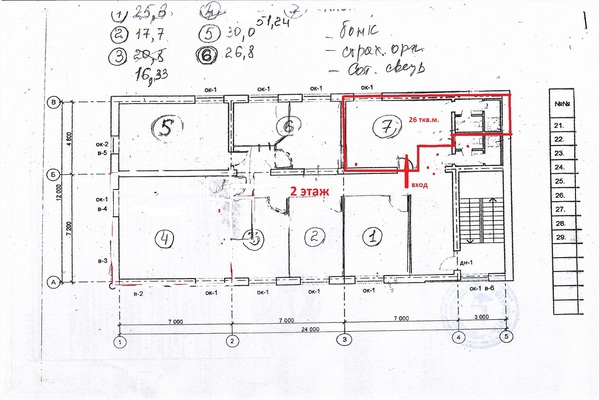 ① 25,3 ④ 7
51,24
② 17,7 ⑤ 30,0 - банк
③ 20,8 ⑥ 26,8 - страх. орг.
16,33 - Сот. связь
ок-1 ок-1 ок-1
В
5 6 7 26 ткв.м.
№№
4 800
ок-2
в-5
21.
22.
23.
Б
12 000
2 этаж
вход
24.
ок-1
в-4
25.
26.
7 200
4 3 2 1
27.
28.
29.
в-3
дн-1
А
в-2 ок-1 ок-1 ок-1 ок-1 в-6
7 000 7 000 7 000 3 000
24 000
1 2 3 4 5